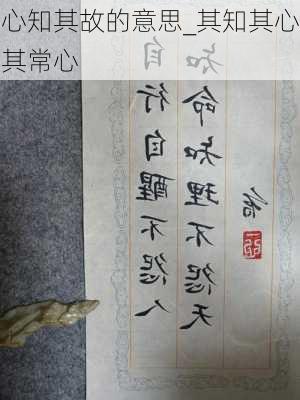 心知其故的意思_其知其心
其常心
自行自醒不怨人
知命知理不怨天